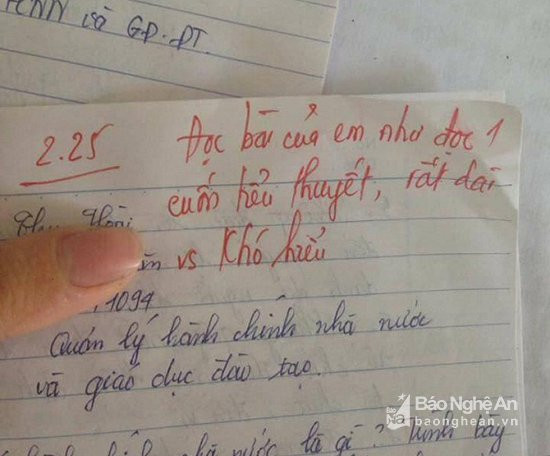 và GD.ĐT.
2.25
Đọc bài của em như đọc 1
cuốn tiểu thuyết, rất dài
vs Khó hiểu
1094
Quản lý hành chính nhà nước
và giáo dục đào tạo.
nhà nước là gì? Trình bày
Báo Nghệ An
baonghean.vn